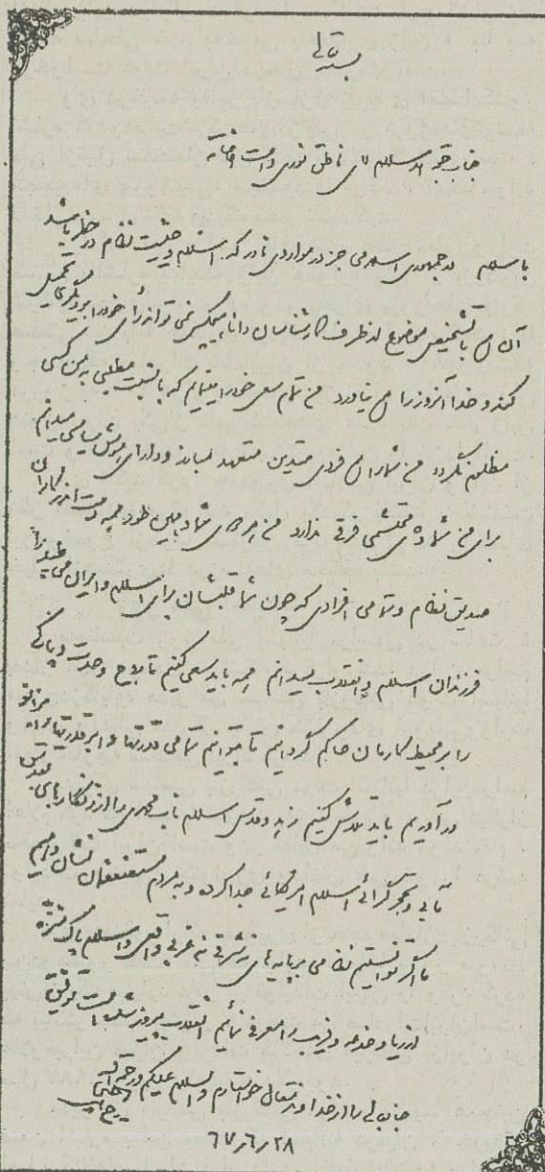 بسمه تعالی
جناب حجة الاسلام آقای ناطق نوری دامت افاضاته
با سلام در جمهوری اسلامی جز در مواردی نادر که اسلام و حیثیت نظام در خطر باشد
آن هم با تشخیص موضوع از طرف کارشناسان دانا هیچکس نمی تواند رأی خود را بر دیگری تحمیل
کند و خدا آنروز را هم نیاورد من تمام سعی خود را مینمایم که با نسبت مطلبی به من کسی
مظلوم نگردد من شما را هم فردی متدین متعهد مبارز و دارای بینش سیاسی میدانم
برای من شما و آقای محتشمی فرقی ندارد من امثال شما و همین طور همه دست اندرکاران
صدیق نظام و تمامی افرادی که چون شما قلبشان برای اسلام و ایران می طپد را
فرزندان اسلام و انقلاب میدانم همه باید سعی کنیم تا سلاح وحدت و پاکی
را بر محیط کارمان حاکم گردانیم تا بتوانیم تمامی قدرتها و ابرقدرتها را به زانو
در آوریم باید تلاش کنیم زهد و قدس اسلام ناب محمدی را از زنگارهای تقدس
مآبی و تحجرگرائی اسلام امریکائی جدا کرده و به مردم مستضعفمان نشان دهیم
ما اگر توانستیم نظامی بر پایه های نه شرقی نه غربی واقعی و اسلام پاک منزه
از ریا و خدعه و فریب را معرفی نمائیم انقلاب پیروز شده است توفیق
جنابعالی را از خداوند متعال خواستارم والسلام علیکم و رحمة الله
روح الله الموسوی الخمینی
۶۷/۶/۲۸